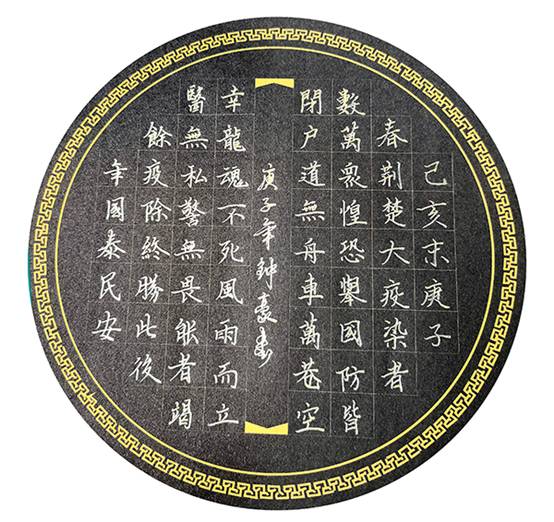 己亥末庚子
春荆楚大疫染者
數萬衆惶恐舉國防皆
閉户道無舟車萬巷空
庚子年鈡豪書
幸龍魂不死風雨而立
醫無私警無畏能者竭
餘疫除終勝此後
年國泰民安